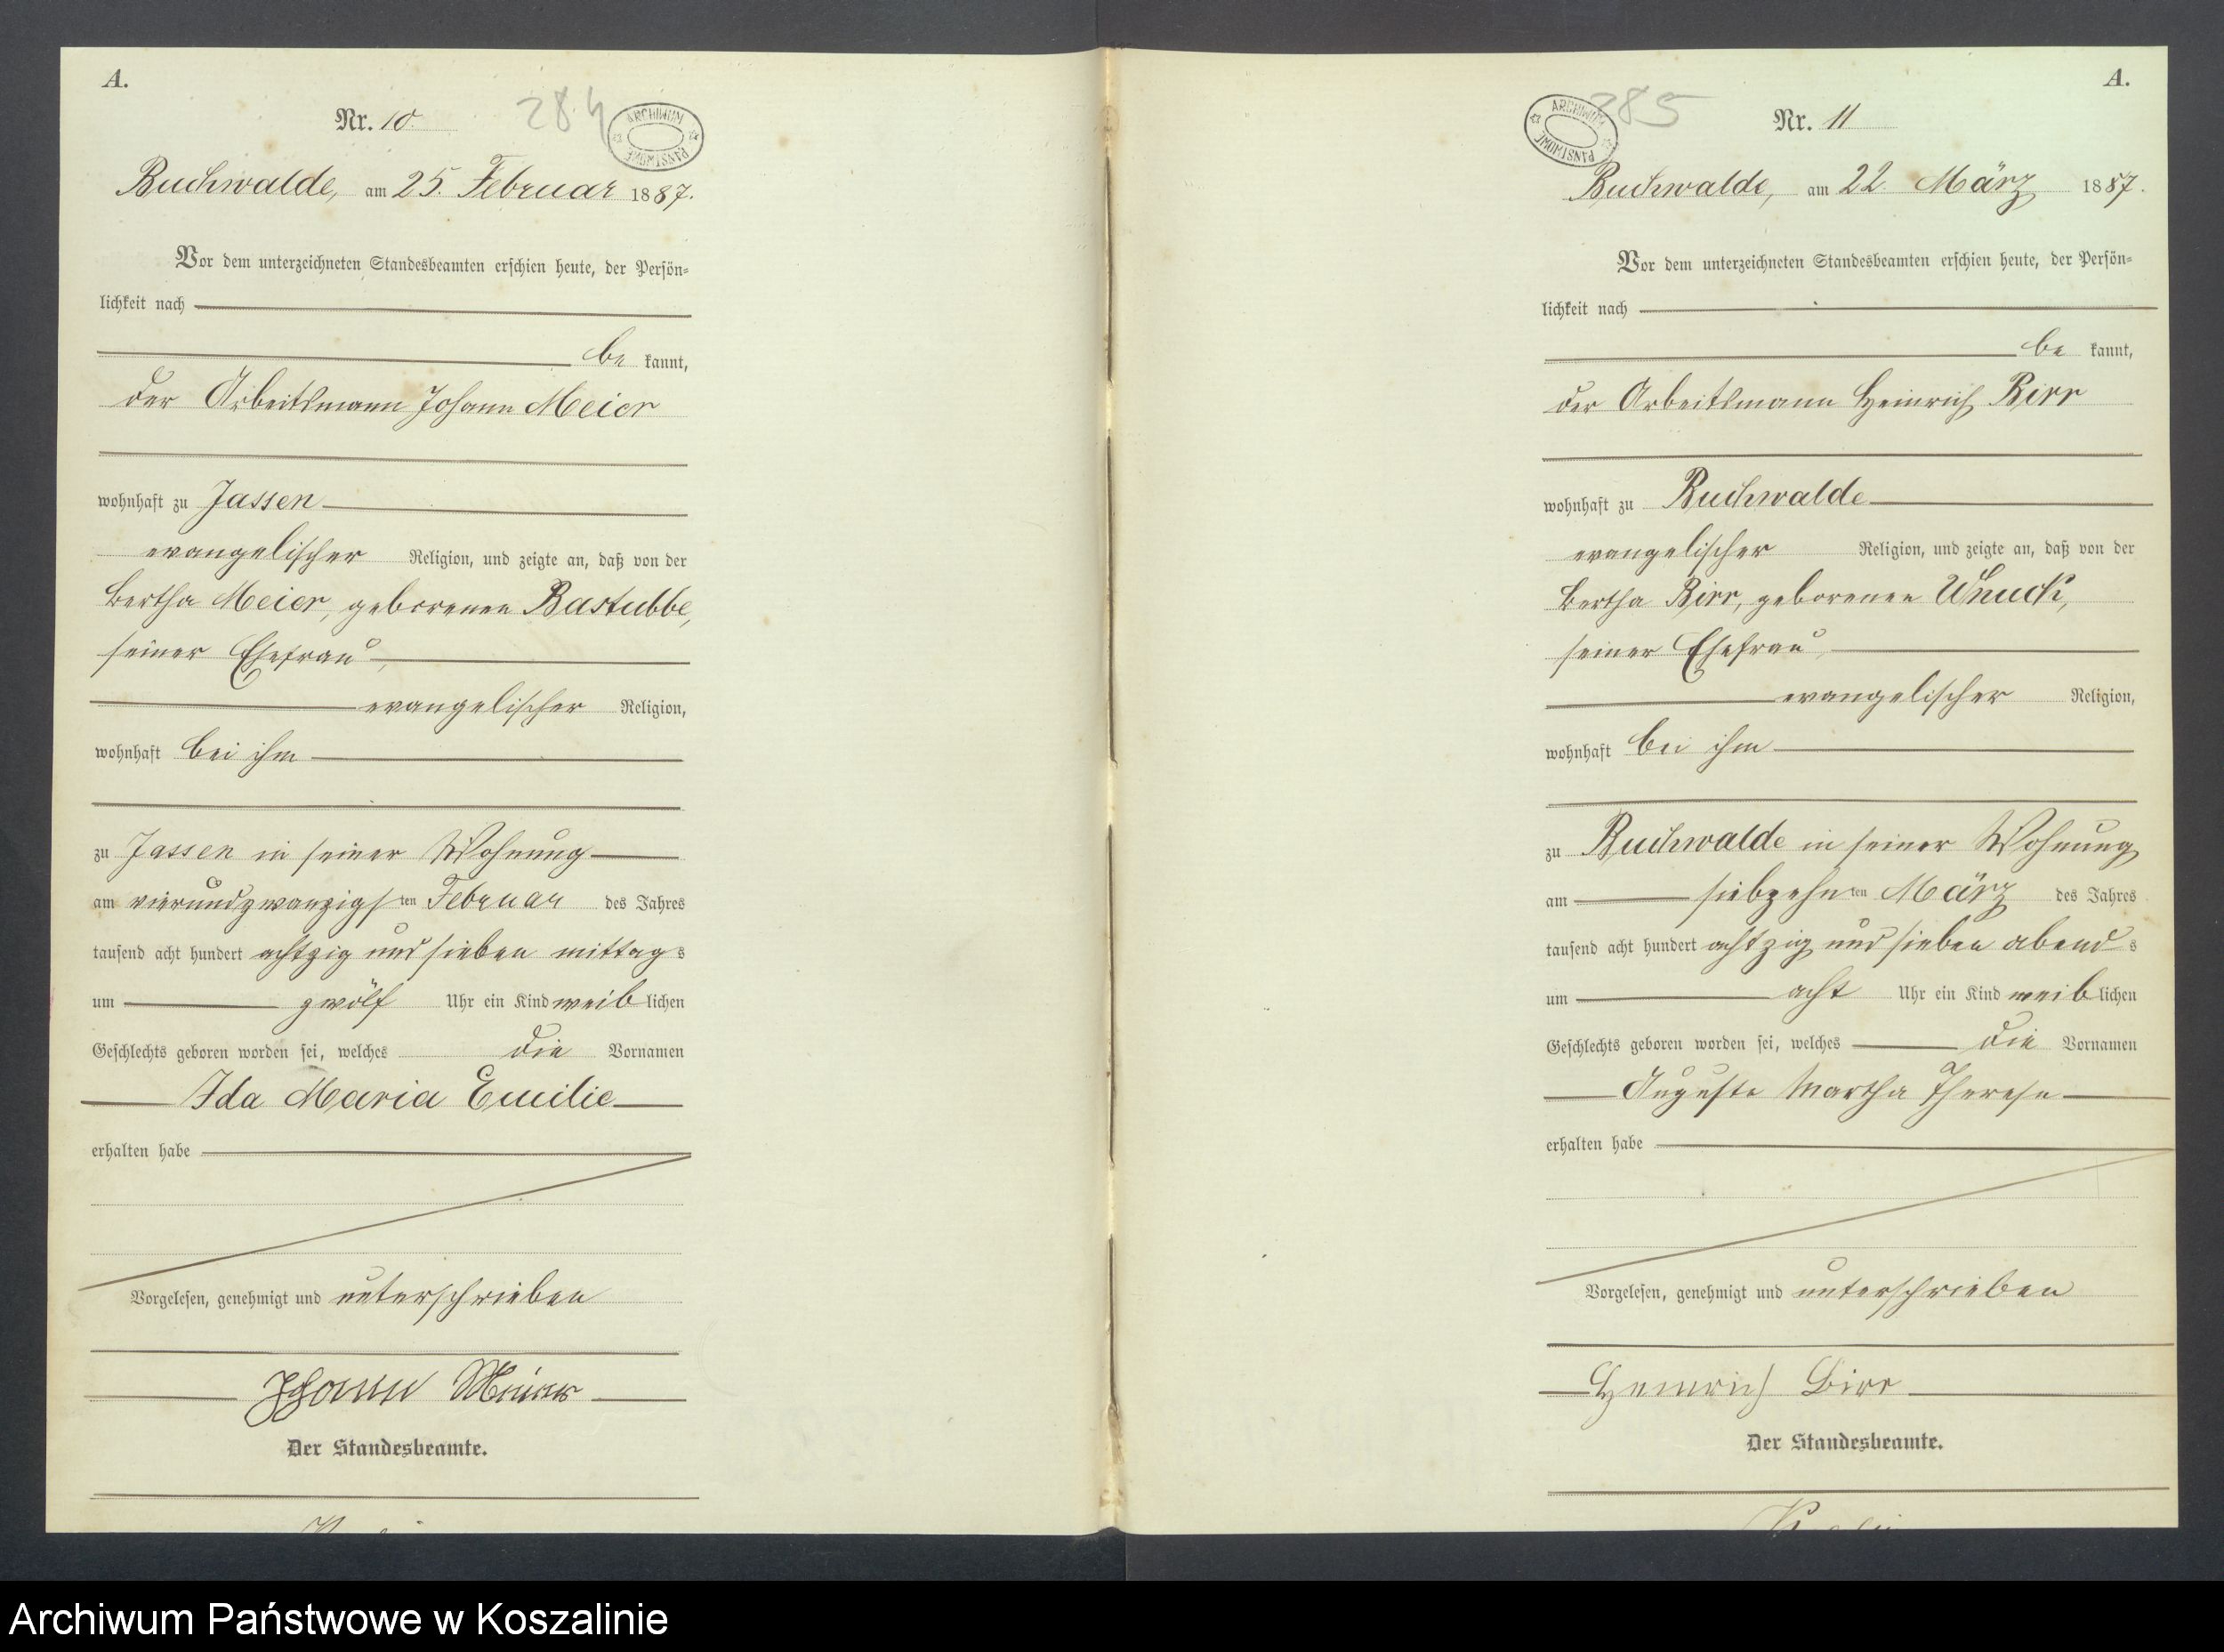 A.
Nr. 10.
284
ARCHIWUM PAŃSTWOWE
Buchwalde, am 25. Februar 1887.
Vor dem unterzeichneten Standesbeamten erschien heute, der Persön-
lichkeit nach
be kannt,
der Arbeitsmann Johann Meier
wohnhaft zu Jassen
evangelischer Religion, und zeigte an, daß von der
Bertha Meier, geborenen Bastubbe,
seiner Ehefrau,
evangelischer Religion,
wohnhaft bei ihm
zu Jassen in seiner Wohnung
am vierundzwanzigs ten Februar des Jahres
tausend acht hundert achtzig und sieben mittag s
um zwölf Uhr ein Kind weib lichen
Geschlechts geboren worden sei, welches die Vornamen
Ida Maria Emilie
erhalten habe
Vorgelesen, genehmigt und unterschrieben
Johann
Der Standesbeamte.
A.
Nr. 11
285
ARCHIWUM PAŃSTWOWE
Buchwalde, am 22. März 1887.
Vor dem unterzeichneten Standesbeamten erschien heute, der Persön-
lichkeit nach
be kannt,
der Arbeitsmann Heinrich Birr
wohnhaft zu Buchwalde
evangelischer Religion, und zeigte an, daß von der
Bertha Birr, geborenen Whuck,
seiner Ehefrau,
evangelischer Religion,
wohnhaft bei ihm
zu Buchwalde in seiner Wohnung
am siebzehn ten März des Jahres
tausend acht hundert achtzig und sieben abend s
um acht Uhr ein Kind weib lichen
Geschlechts geboren worden sei, welches die Vornamen
Auguste Martha Therese
erhalten habe
Vorgelesen, genehmigt und unterschrieben
Heinrich Birr
Der Standesbeamte.
Archiwum Państwowe w Koszalinie